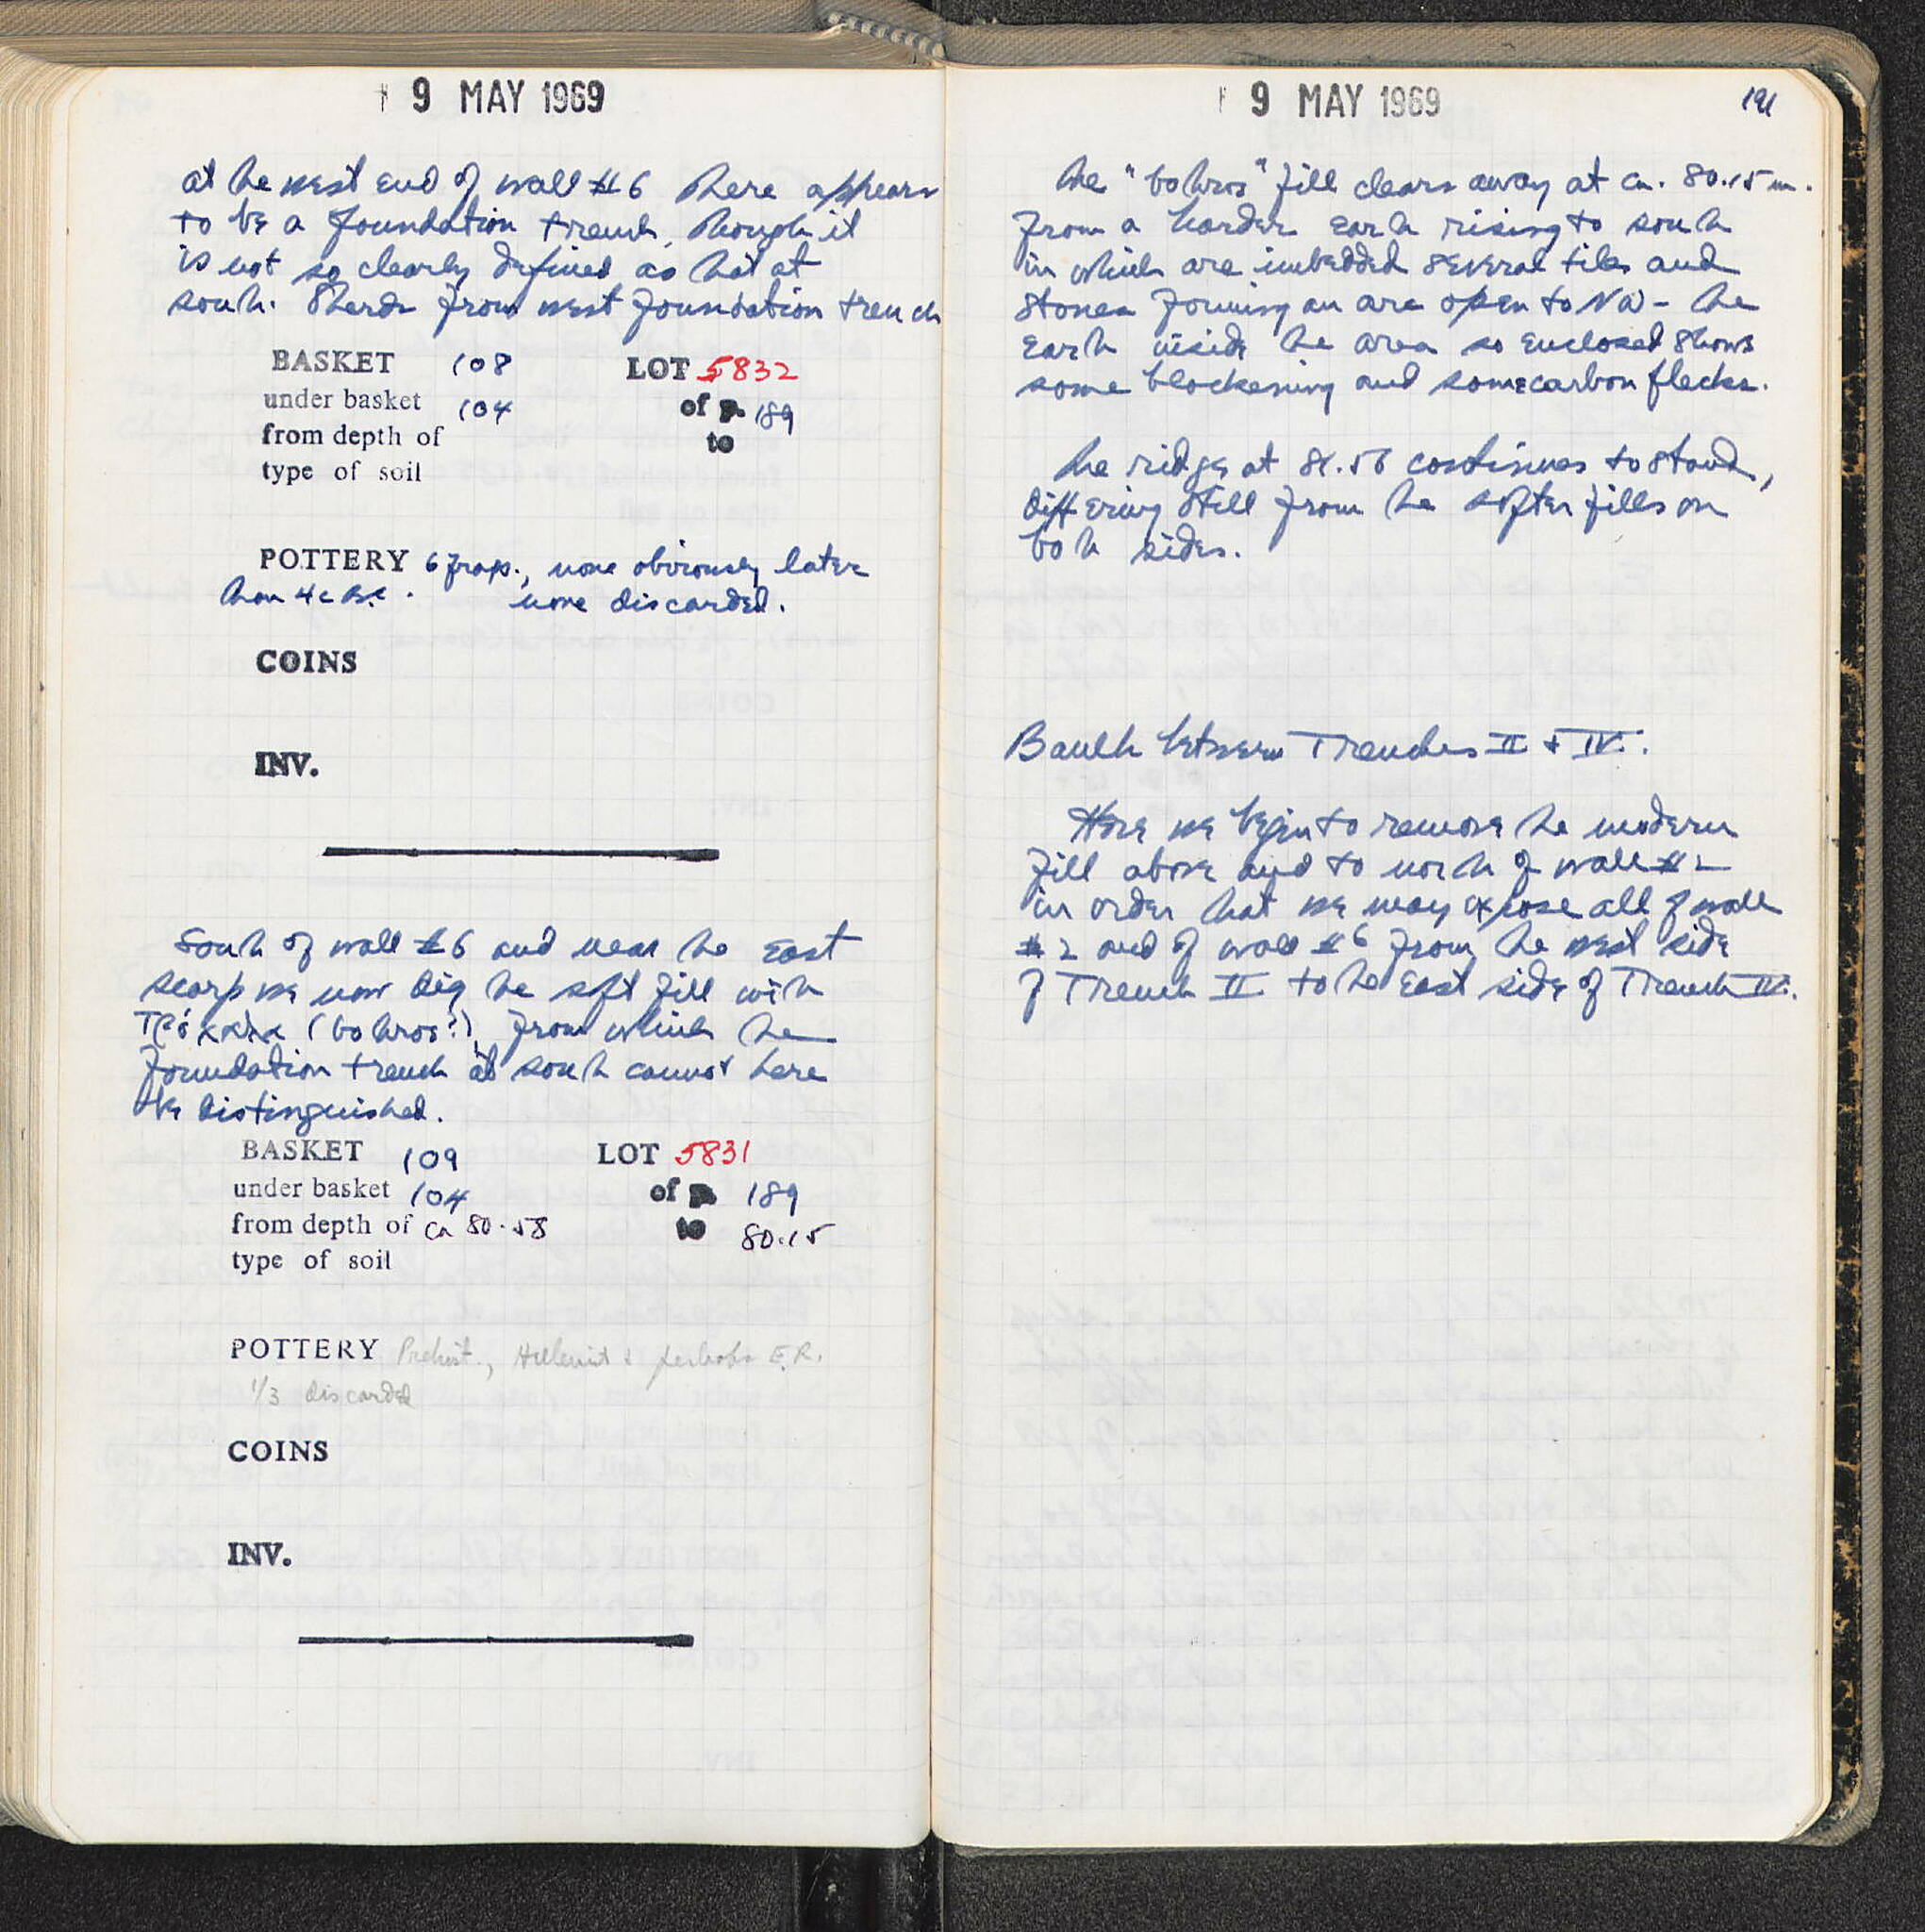 9 MAY 1969
at the west end of wall #6 there appears
to be a foundation trench, though it
is not so clearly defined as that at
south. Sherds from west foundation trench
BASKET 108 LOT 5832
under basket 104 of p. 189
from depth of to
type of soil
POTTERY 6 frags., none obviously later
than 4 c B.C. none discarded.
COINS
INV.
South of wall #6 and near the East
scarp we now dig the soft fill with
(bothros?), from which the
foundation trench at south cannot here
be distinguished.
BASKET 109 LOT 5831
under basket 104 of p. 189
from depth of ca 80.58 to 80.15
type of soil
POTTERY Prehist., Hellenist & perhaps E.R.
1/3 discarded
COINS
INV.
9 MAY 1969 191
The "bothros" fill clears away at ca. 80.15 m.
from a harder earth rising to south
in which are imbedded several tiles and
stones forming an arc open to NW - the
earth inside the area so enclosed shows
some blackening and some carbon flecks.
The ridge at 81.56 continues to stand,
differing still from the softer fills on
both sides.
Baulk between Trenches II & IV.
Here we begin to remove the modern
fill above and to north of wall #2
in order that we may expose all of wall
#2 and of wall #6 from the west side
of Trench II to the East side of Trench IV.